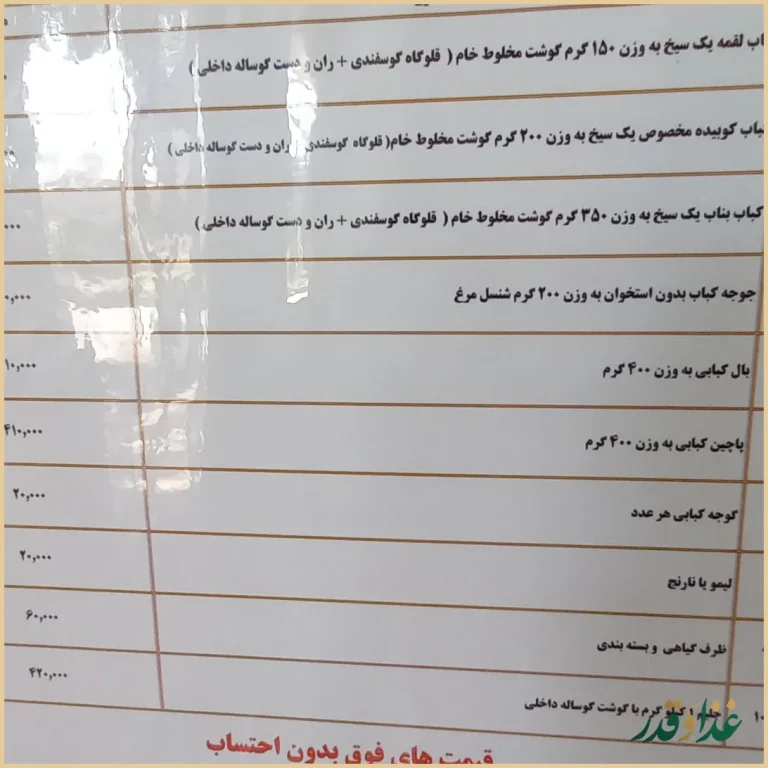 لقمه یک سیخ به وزن ۱۵۰ گرم گوشت مخلوط خام ( قلوگاه گوسفندی + ران و دست گوساله داخلی )
کوبیده مخصوص یک سیخ به وزن ۲۰۰ گرم گوشت مخلوط خام( قلوگاه گوسفندی ران و دست گوساله داخلی )
کباب بناب یک سیخ به وزن ۳۵۰ گرم گوشت مخلوط خام ( قلوگاه گوسفندی + ران و دست گوساله داخلی )
جوجه کباب بدون استخوان به وزن ۲۰۰ گرم شنسل مرغ
بال کبابی به وزن ۴۰۰ گرم
پاچین کبابی به وزن ۴۰۰ گرم ۴۱۰,۰۰۰
گوجه کبابی هر عدد ۲۰,۰۰۰
لیمو یا نارنج ۲۰,۰۰۰
ظرف گیاهی و بسته بندی ۶۰,۰۰۰
۱ کیلو گرم با گوشت گوساله داخلی ۴۲۰,۰۰۰
قیمت های فوق بدون احتساب
غذا و قدر